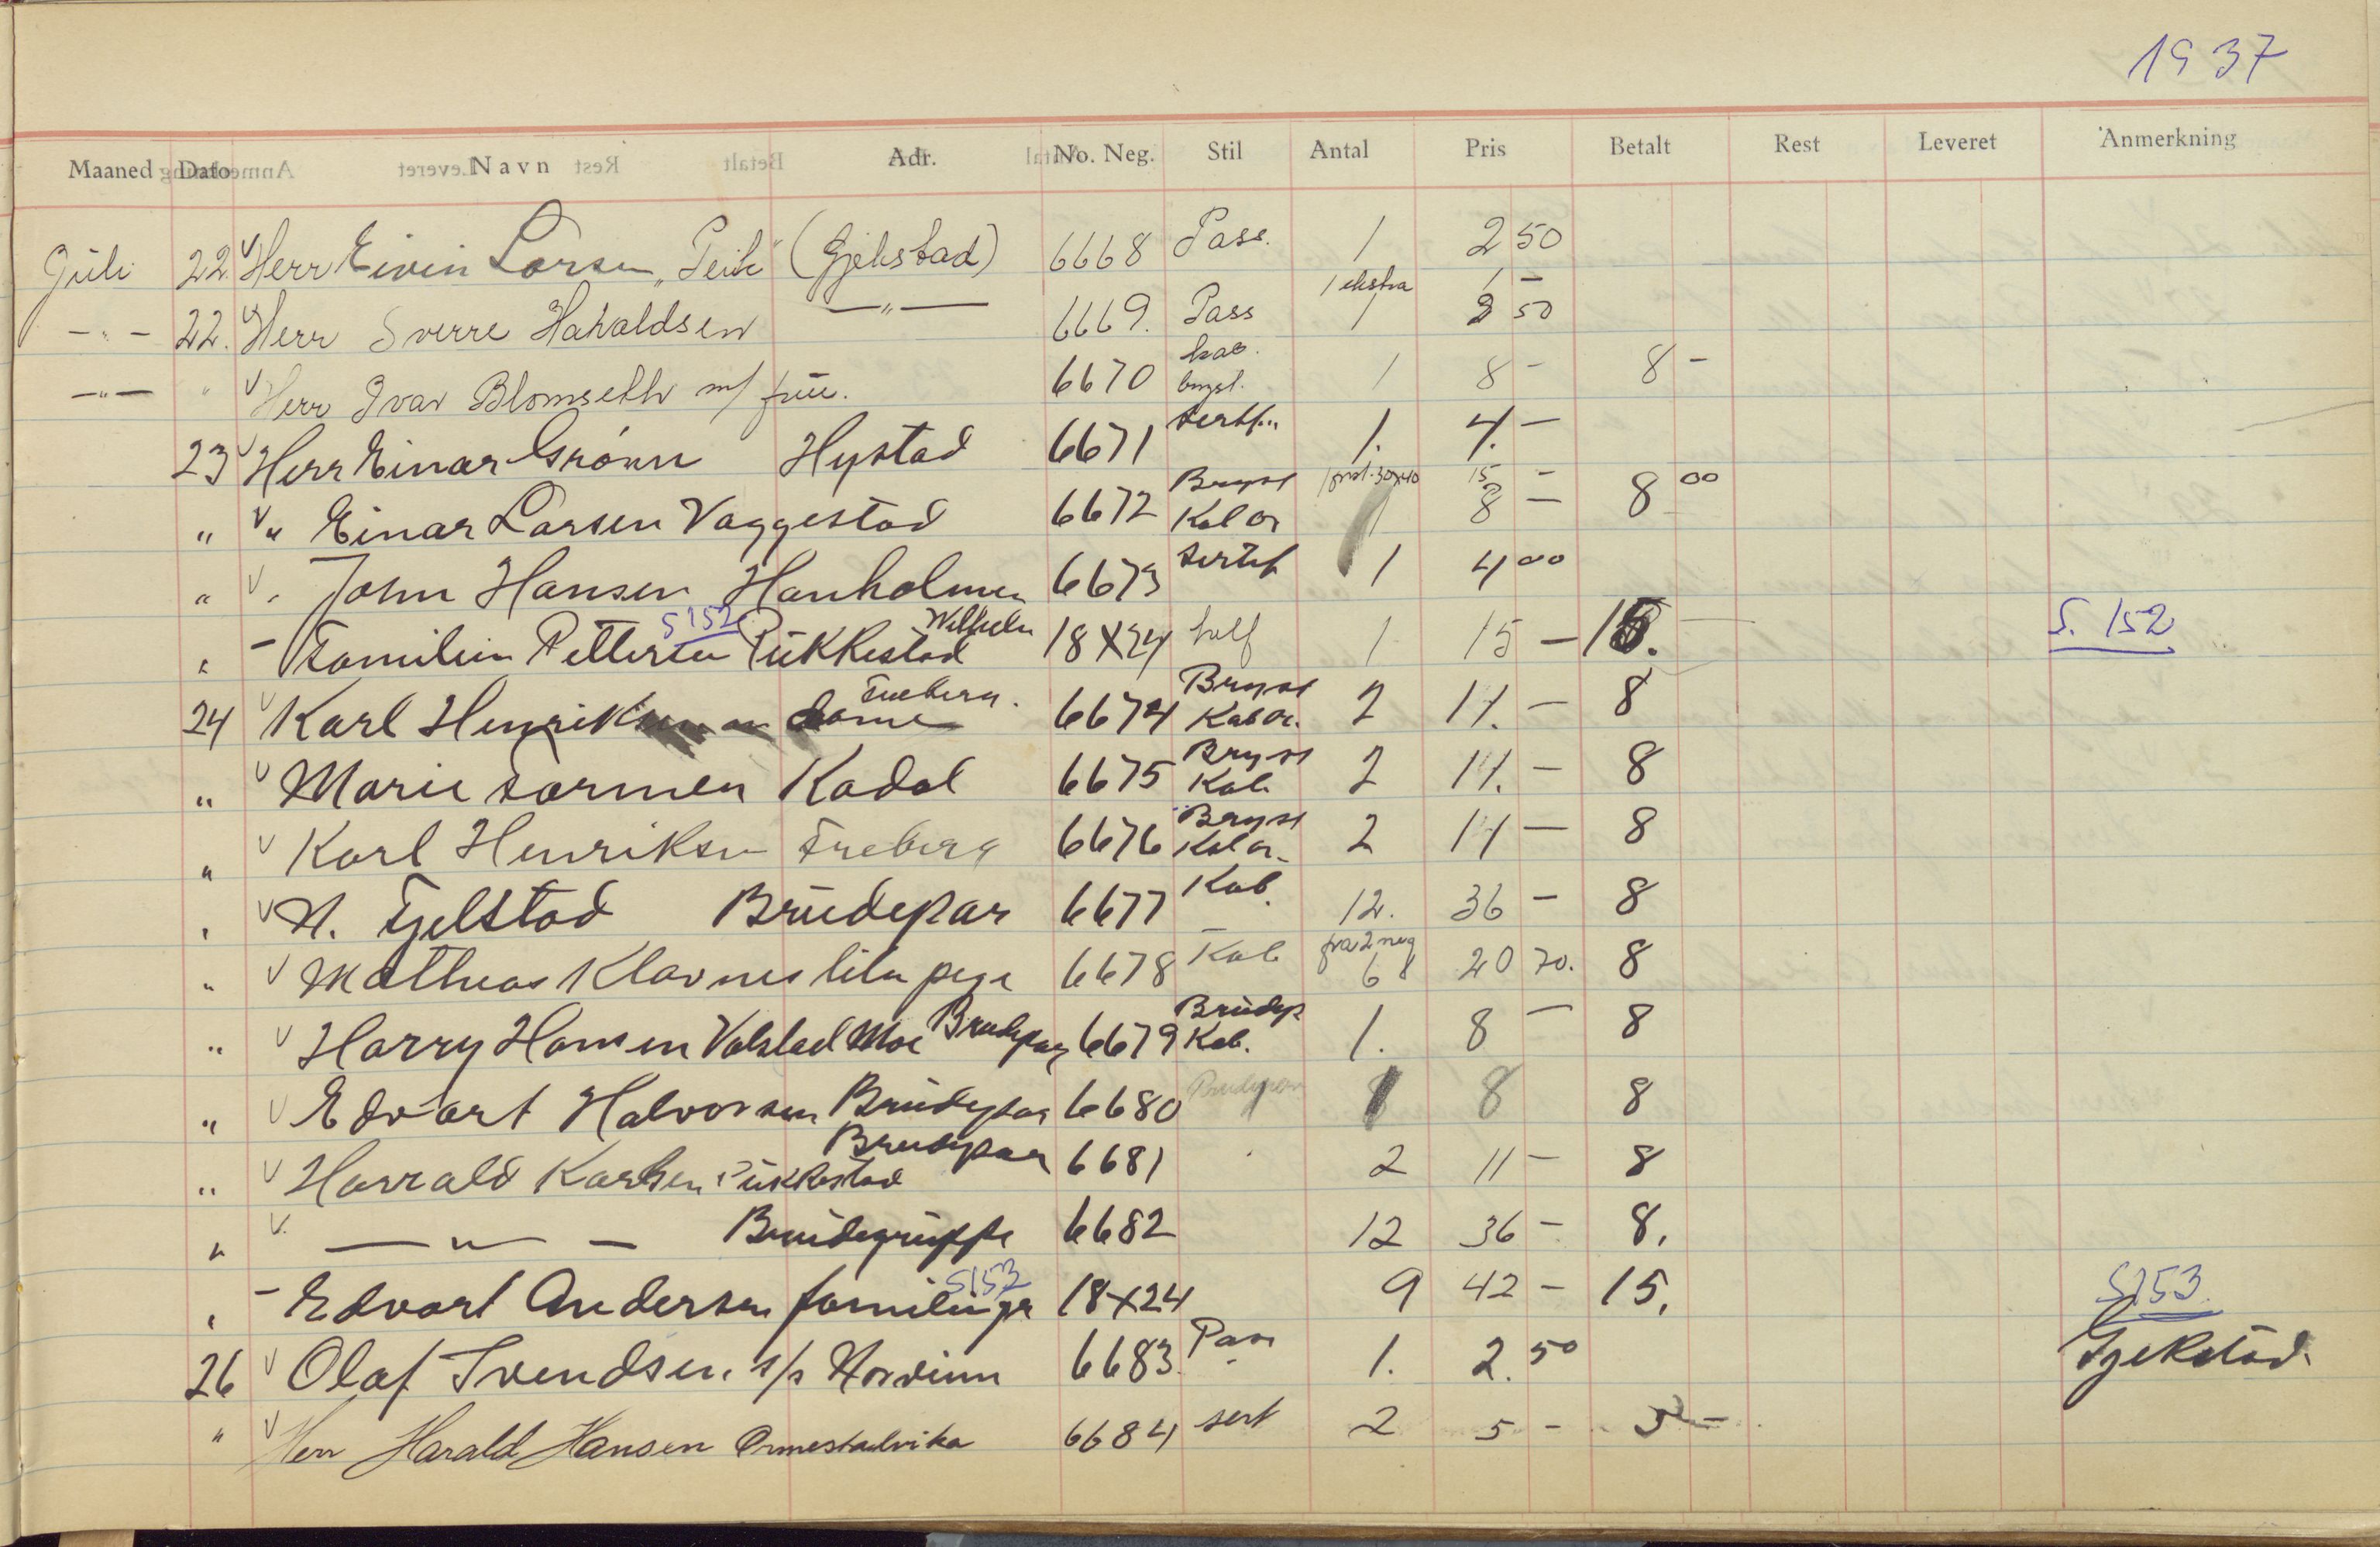 1937
Maaned Dato Navn Adr. No. Neg. Stil Antal Pris Betalt Rest Leveret Anmerkning
Juli 22. V Herr Eivin Larsen „Peik" (Gjekstad) 6668 Pass. 1 2 50
1 ekstra 1 -
-„- 22. V Herr Sverre Haraldsen -„- 6669. Pass 1 50
-„- " V Herr Ivar Blomseth m/ frue. 6670 kab. 1 8 - 8 -
23 V Herr Einar Grönn Hystad 6671 1. 4. -
" V " Einar Larsen Vaggestad 6672 Bryst 1 8 - 8 00
15 -
" V " John Hansen Hanholmen 6673 Sertif 1 4 00
" - Familien Pettersen S 152 Wilhelm Pukkestad 18X24 half 1 15 - 15. S. 152
24 V Karl Henriksen Freberg. 6674 Bryst Kab or. 2 11. - 8
" V Marie Kadal 6675 Bryst Kab. 2 11. - 8
" V Karl Henriksen Freberg 6676 Bryst Kab or. 2 11 - 8
" V N. Fjelstad Brudepar 6677 Kab. 12. 36 - 8
" V Mathias Klavnes lita pige 6678 Kab fra 2 neg 6 20 70. 8
" V Harry Hansen Moe Brudepar 6679 Brudep Kab. 1. 8 - 8
" V Edvart Halvorsen Brudepar 6680 Brudepar 8 8
" V Harrald Karlsen Pukkestad Brudepar 6681 2 11 - 8
" V. -„- Brudegruppe 6682 12 36 - 8.
" - Edvart Andersen familiegr S153 18X24 9 42 - 15. S153.
26 V Olaf Svendsen s/s Nordinn 6683. Pass 1. 2. 50 Gjekstad.
" V Herr Harald Hansen Ormestadvika 6684 sert 2 5 - 5 -